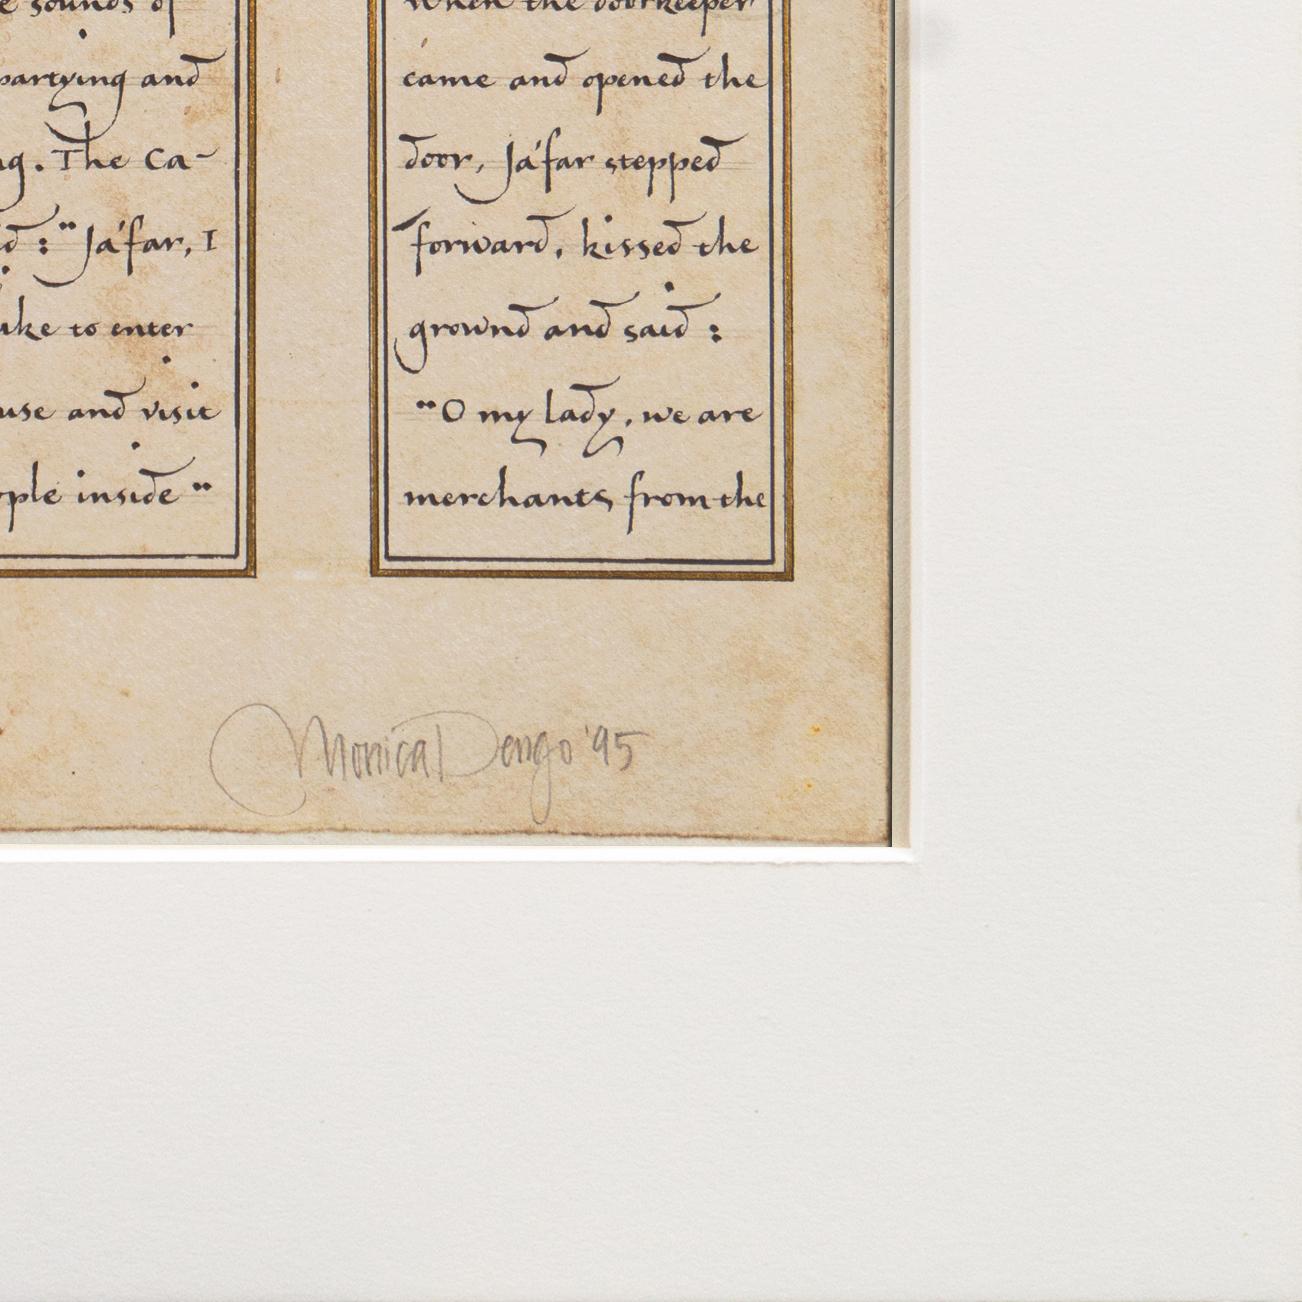 sounds of
partying and
. The Ca-
: "Ja'far, I
to enter
and visit
inside "
When the doorkeeper
came and opened the
door, Ja'far stepped
forward, kissed the
ground and said :
"O my lady, we are
merchants from the
Monica Dengo '95